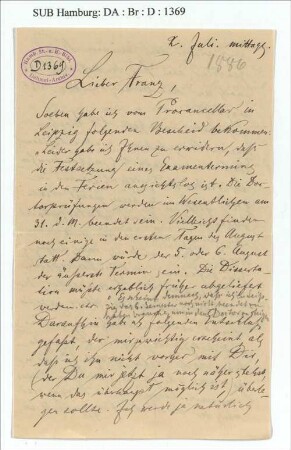 SUB Hamburg: DA : Br : D : 1369
D 1369
Juli. mittags.
1886
Lieber Franz,
Soeben habe ich vom Procancellar in
Leipzig folgenden Bescheid bekommen:
Leider habe ich Ihnen zu erwidern, daß
die Festsetzung eines Examentermins
in den Ferien aussichtslos ist. Die Doc-
torprüfungen werden im Wesentlichen am
31. d. M. beendet sein. Vielleicht finden
noch einige in den ersten Tagen des August
statt. Dann würde der 5. oder 6. August
der äußerste Termin sein. Die Disserta-
tion müßte möglichst frühe abgeliefert
werden.
Daraufhin habe ich folgenden Entschluß
gefaßt, der mir wichtig erscheint als
daß ich ihn nicht vorher mit Dir,
(der Du mir jetzt ja noch näher stehst
wenn das überhaupt möglich ist) überle-
gen sollte. Ich werde ja natürlich